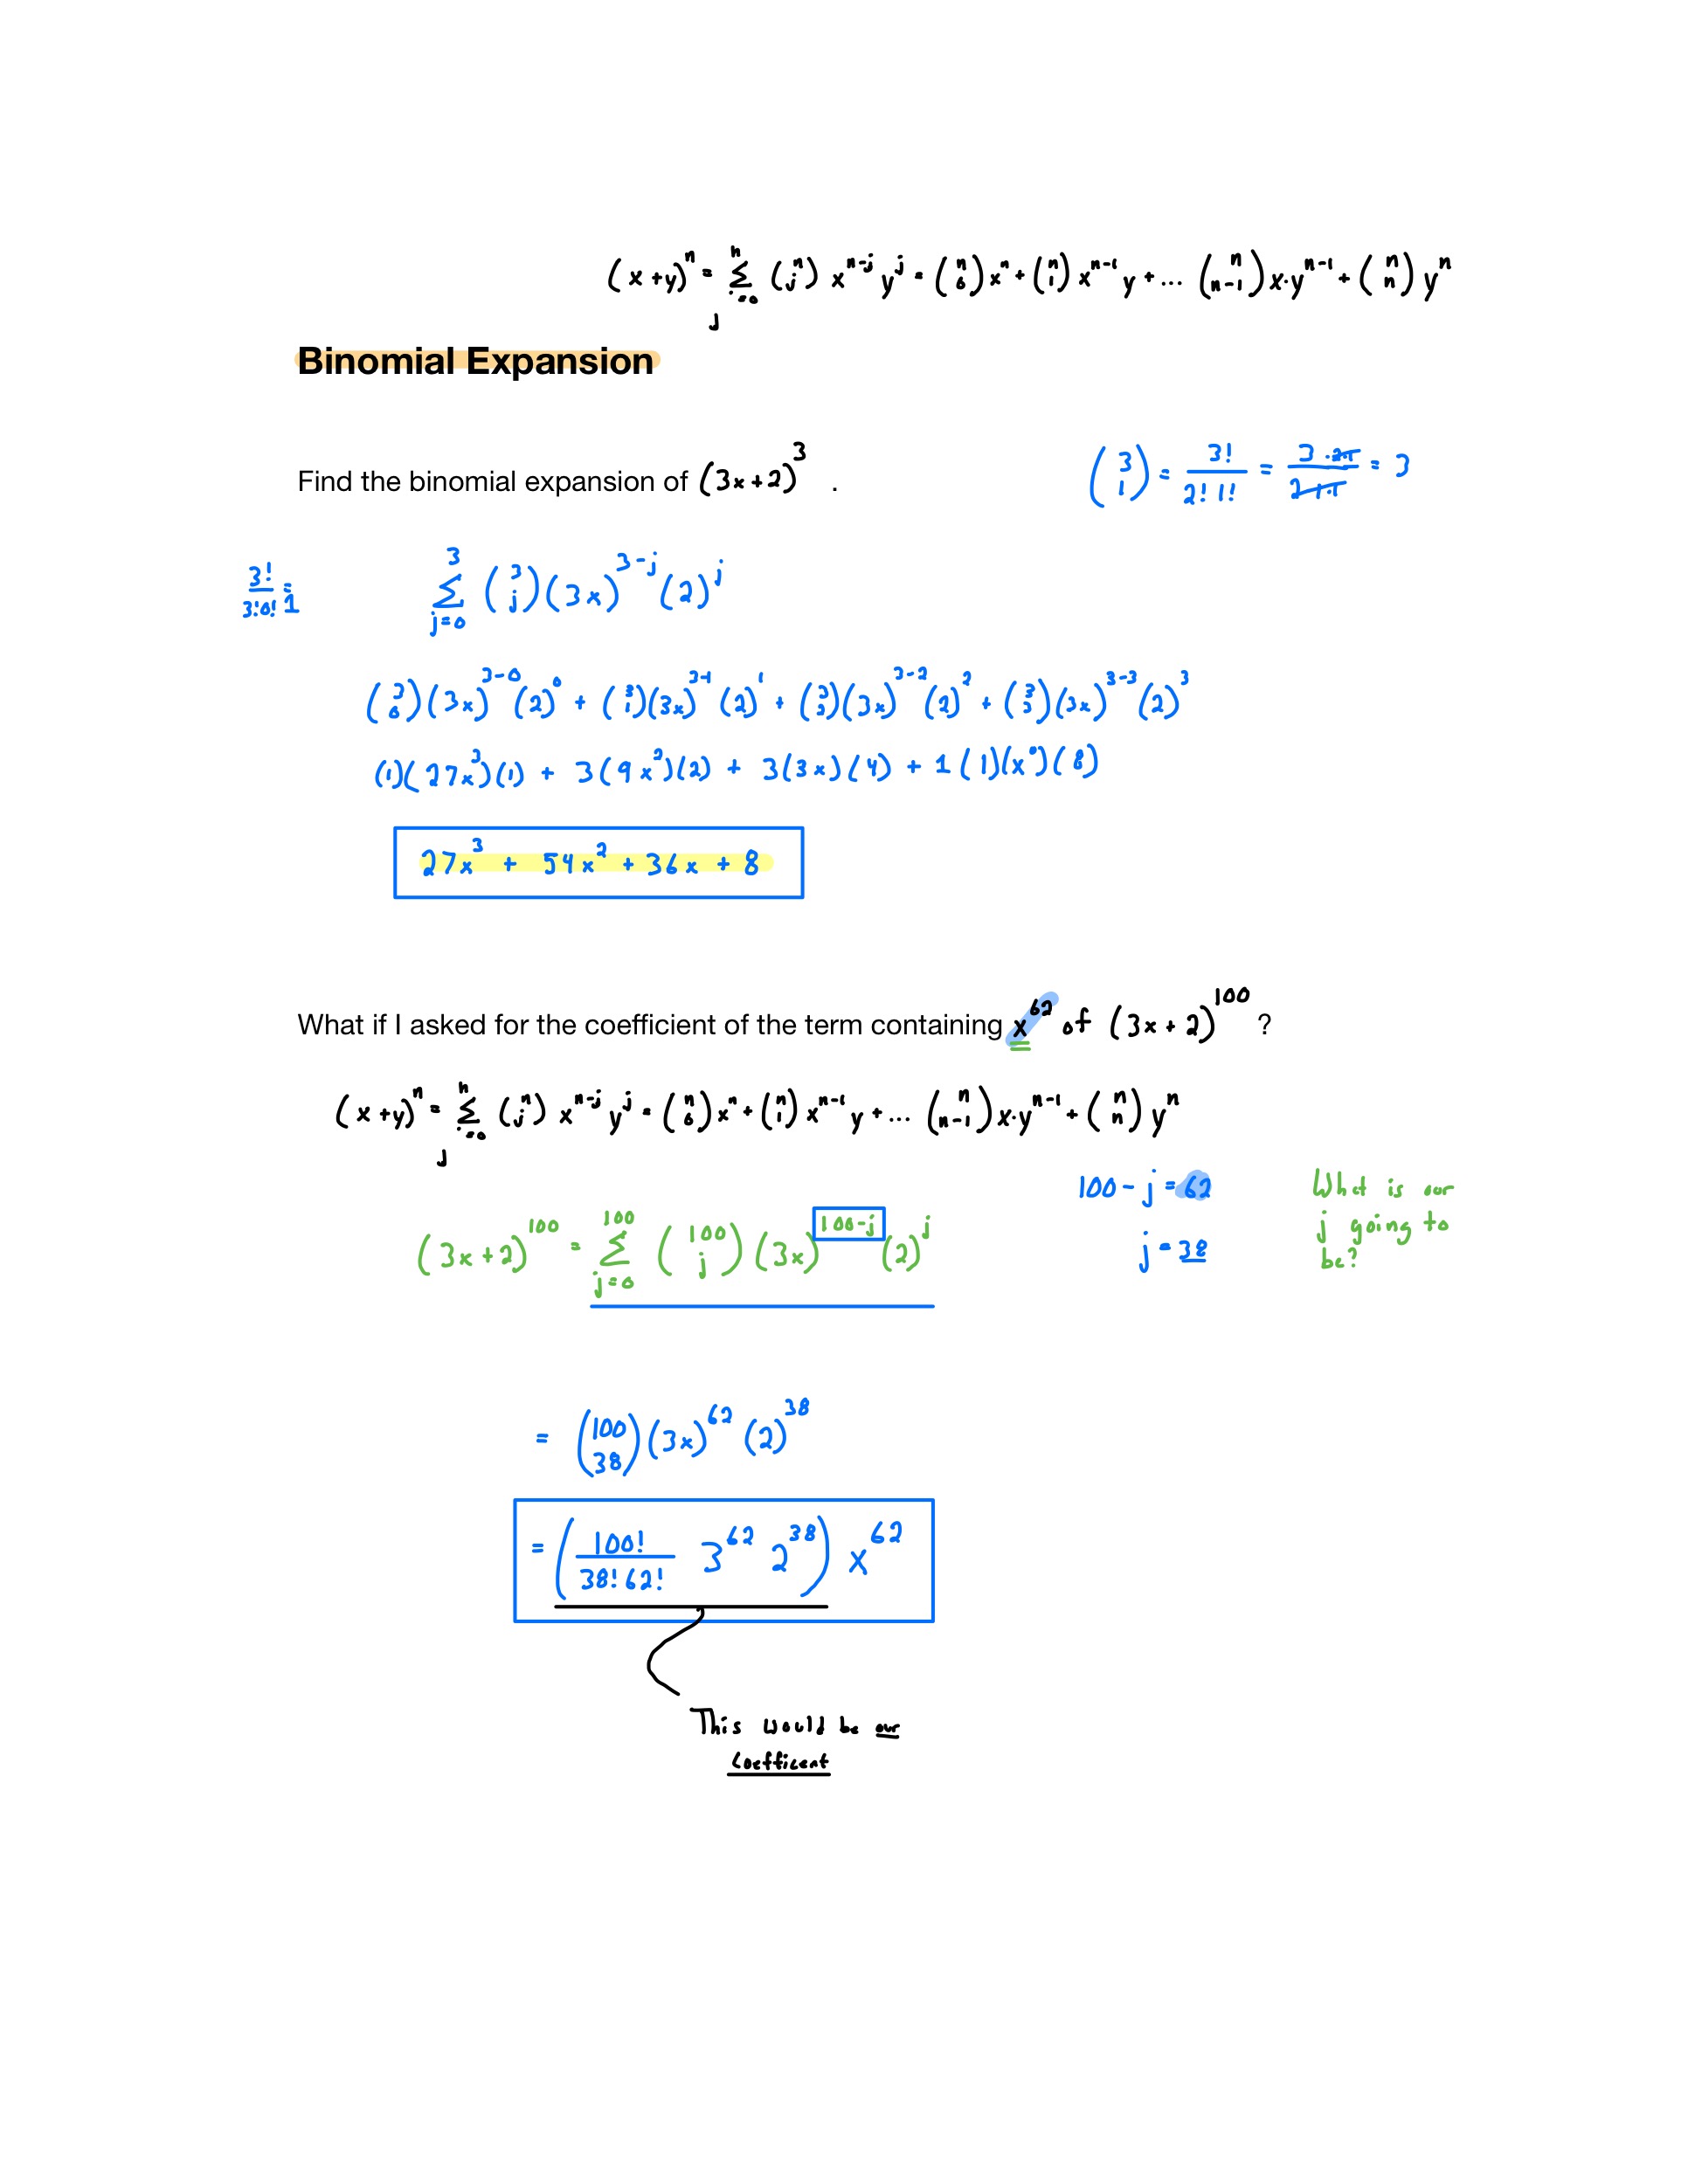 (x+y)^n = Σ_{j=0}^{n} (n j) x^{n-j} y^j = (n 0) x^n + (n 1) x^{n-1} y + ... (n n-1) x·y^{n-1} + (n n) y^n
Binomial Expansion
Find the binomial expansion of (3x+2)^3 .
(3 1) = 3!/(2! 1!) = (3·2·1)/(2·1·1) = 3
3!/(3!0!) = 1
Σ_{j=0}^{3} (3 j)(3x)^{3-j}(2)^j
(3 0)(3x)^{3-0}(2)^0 + (3 1)(3x)^{3-1}(2)^1 + (3 2)(3x)^{3-2}(2)^2 + (3 3)(3x)^{3-3}(2)^3
(1)(27x^3)(1) + 3(9x^2)(2) + 3(3x)(4) + 1(1)(x^0)(8)
27x^3 + 54x^2 + 36x + 8
What if I asked for the coefficient of the term containing x^62 of (3x+2)^100 ?
(x+y)^n = Σ_{j=0}^{n} (n j) x^{n-j} y^j = (n 0) x^n + (n 1) x^{n-1} y + ... (n n-1) x·y^{n-1} + (n n) y^n
100 - j = 62
j = 38
What is our
j going to
be?
(3x+2)^100 = Σ_{j=0}^{100} (100 j)(3x)^{100-j}(2)^j
= (100 38)(3x)^62 (2)^38
= (100!/(38! 62!) 3^62 2^38) x^62
This would be our
coefficent